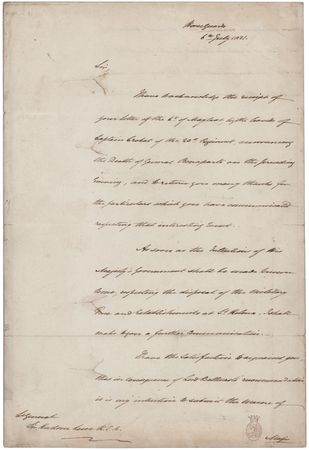 Horse Guards
6th July 1821.
Sir,
I have to acknowledge the receipt of
your letter of the 6th of May last by the hands of
Captain Crokat of the 20th Regiment, announcing
the Death of General Bonaparte on the preceding
Evening, and to return you many thanks for
the particulars which you have communicated
respecting that interesting Event.
As soon as the Intention of His
Majesty's Government shall be made known
to me, respecting the disposal of the Military
Force and Establishments at St Helena, I shall
make to you a further Communication.
I have the satisfaction to acquaint you
that in consequence of Lord Bathurst's recommendation
it is my intention to submit the name of
Lt General
Sir Hudson Lowe K.C.B.